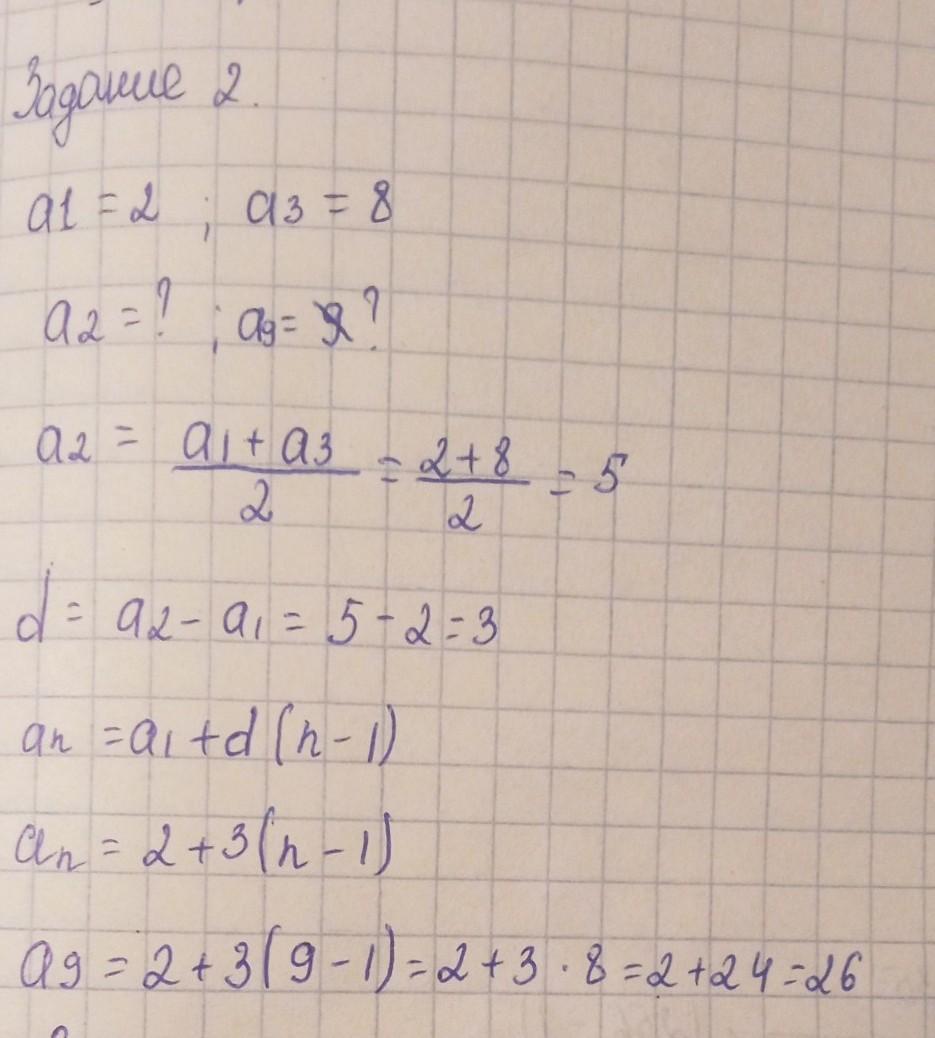 Задание 2.
a1 = 2 ; a3 = 8
a2 = ? ; a9 = ?
a2 = (a1 + a3)/2 = (2 + 8)/2 = 5
d = a2 - a1 = 5 - 2 = 3
an = a1 + d (n - 1)
an = 2 + 3 (n - 1)
a9 = 2 + 3 (9 - 1) = 2 + 3 · 8 = 2 + 24 = 26